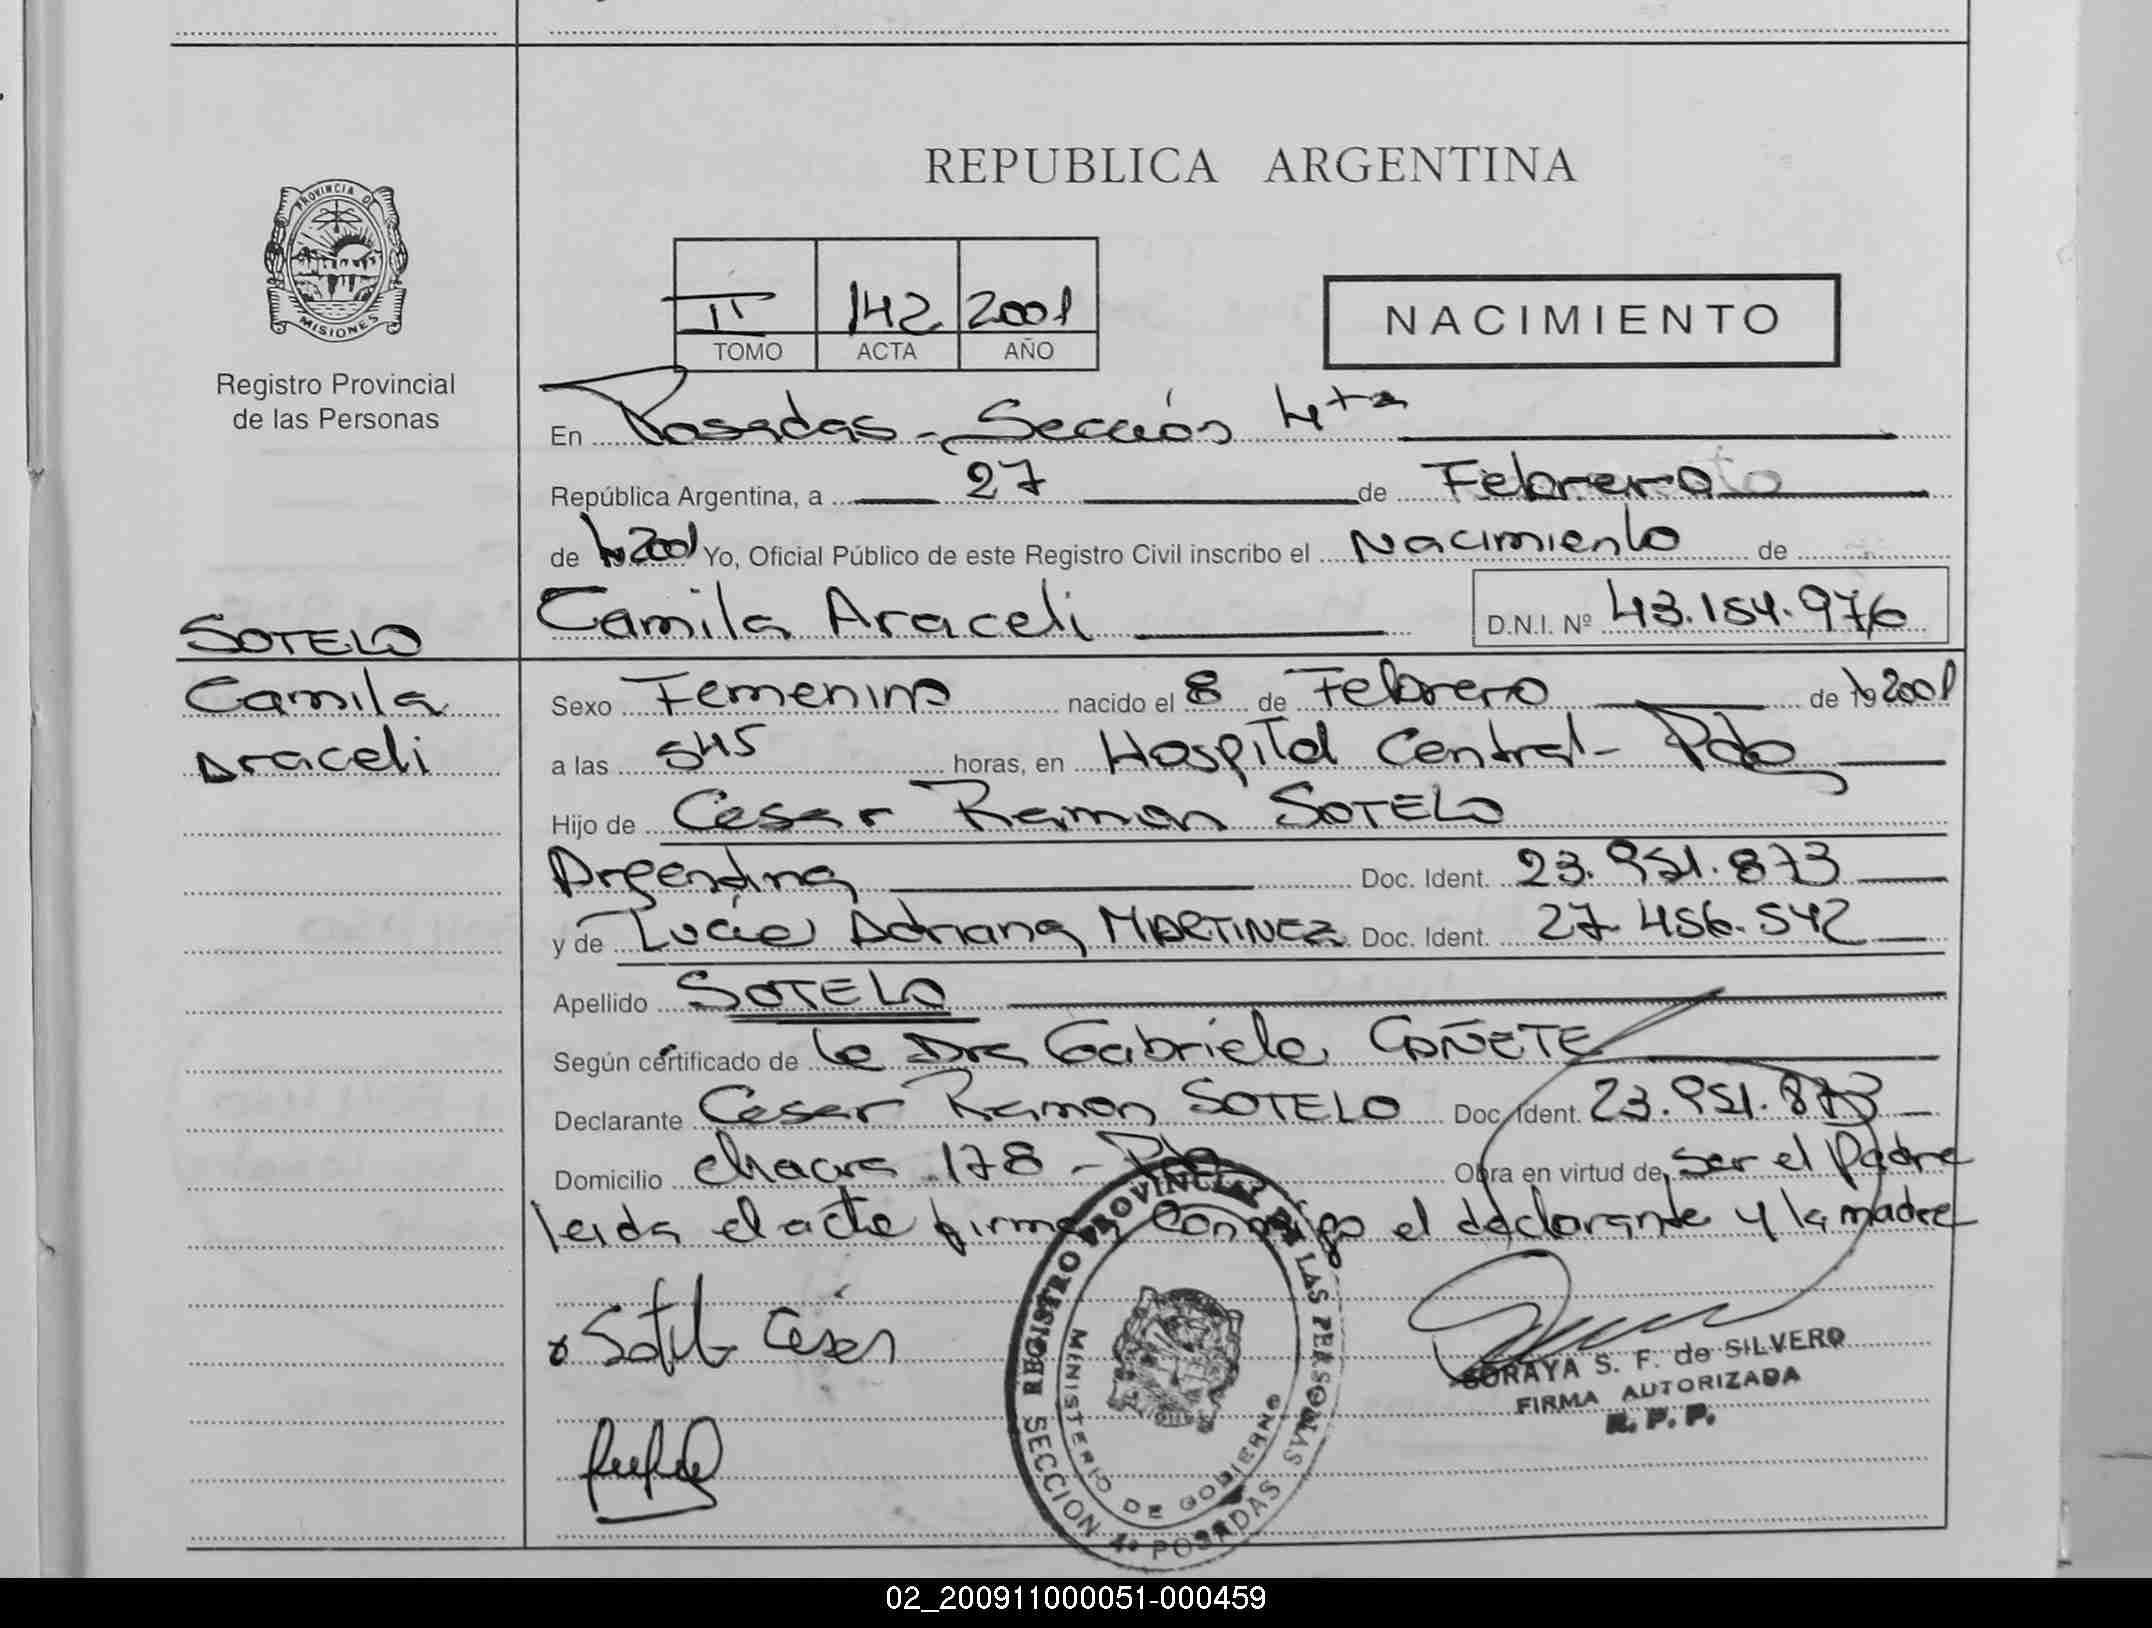 REPUBLICA ARGENTINA
PROVINCIA DE
MISIONES
Registro Provincial
de las Personas
II 142 2001
TOMO ACTA AÑO
NACIMIENTO
En Posadas - Sección 4ta
República Argentina, a 27 de Febrero
de 2001 Yo, Oficial Público de este Registro Civil inscribo el Nacimiento de
Camila Araceli D.N.I. Nº 43.154.976
SOTELO
Camila
Araceli
Sexo Femenino nacido el 8 de Febrero de 2001
a las 545 horas, en Hospital Central - Pdas
Hijo de Cesar Ramon SOTELO
Argentina Doc. Ident. 23.951.873
y de Lucia Adriana MARTINEZ Doc. Ident. 27.456.542
Apellido SOTELO
Según certificado de la Dra Gabriela CAÑETE
Declarante Cesar Ramon SOTELO Doc. Ident. 23.951.873
Domicilio chacra 178 - Obra en virtud de ser el Padre
leida el acta firman conmigo el declarante y la madre
Sotelo Cesar
REGISTRO PROVINCIAL DE LAS PERSONAS
MINISTERIO DE GOBIERNO
SECCION 4ª POSADAS
SORAYA S. F. de SILVERO
FIRMA AUTORIZADA
R. P. P.
02_200911000051-000459